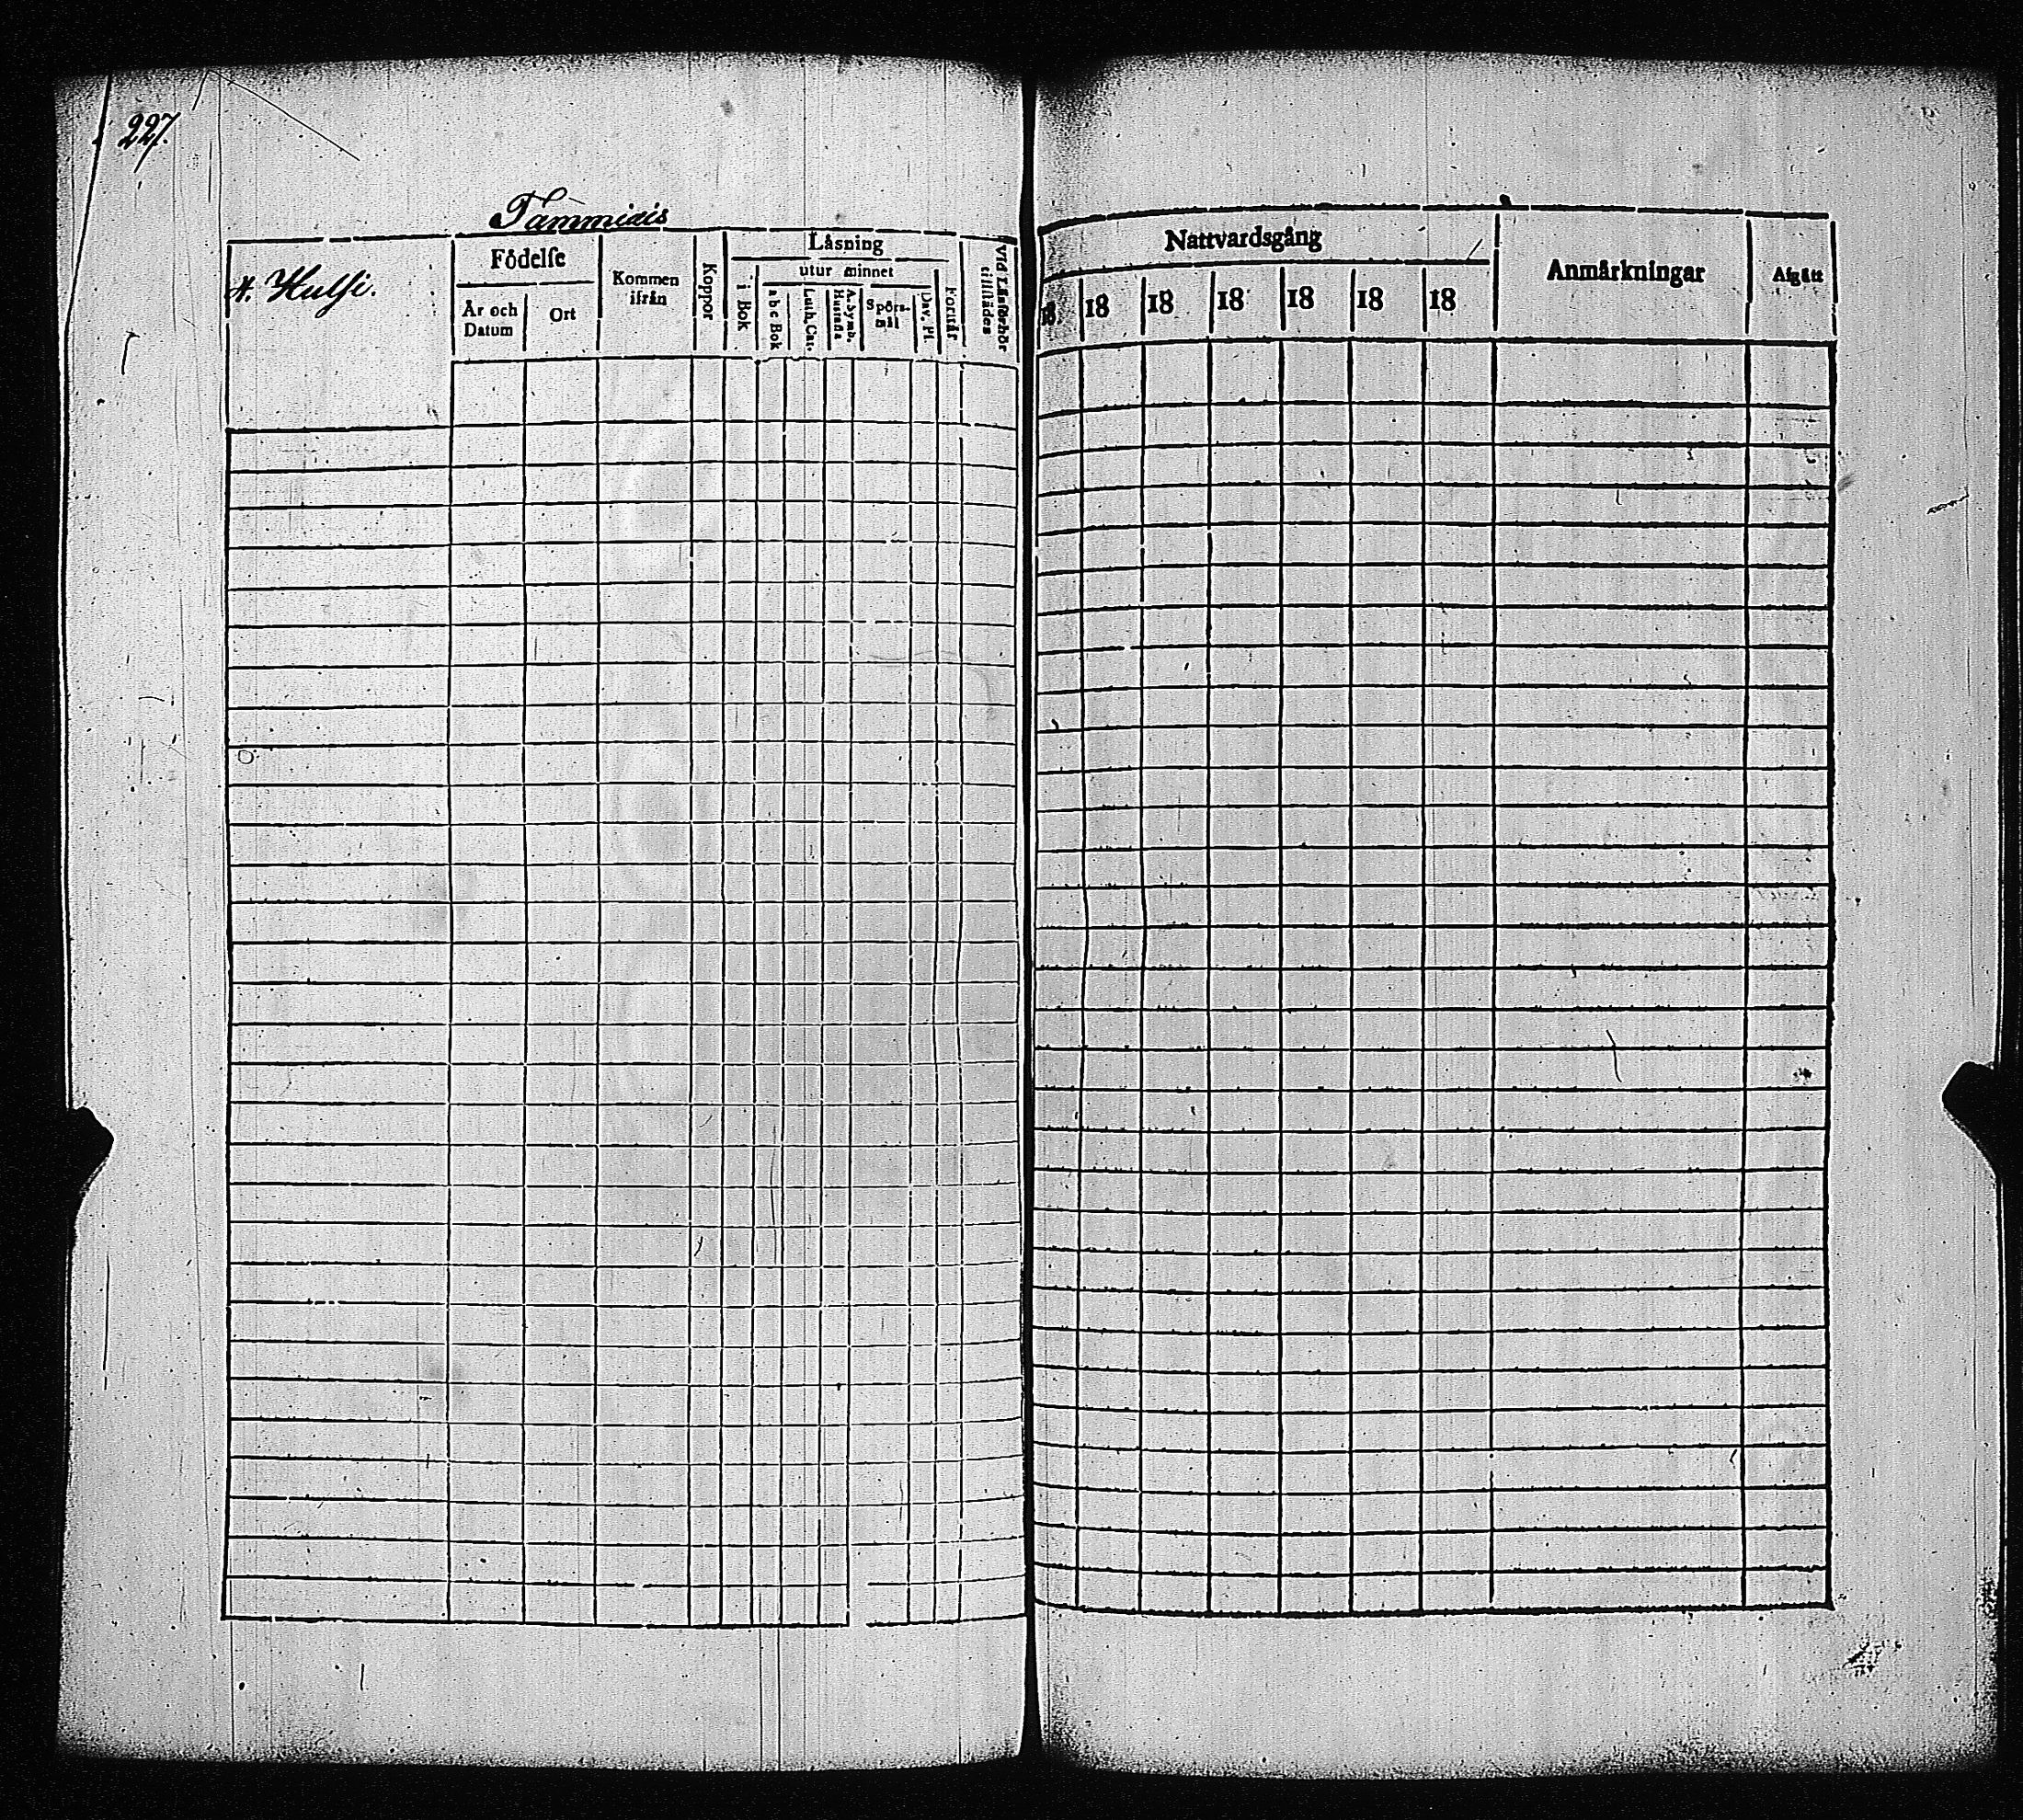 227.
Tammiais
N. Hulsi.
Födelse
År och Datum
Ort
Kommen ifrån
Koppor
Läsning
i Bok
utur minnet
a b c Bok
Luth. Cat.
A. Symb. Hustafla
Spörsmål
Dav. Ps.
Förstår
Vid Läsförhör tillstädes
Nattvardsgång
18 18 18 18 18 18 18
Anmärkningar
Afgått